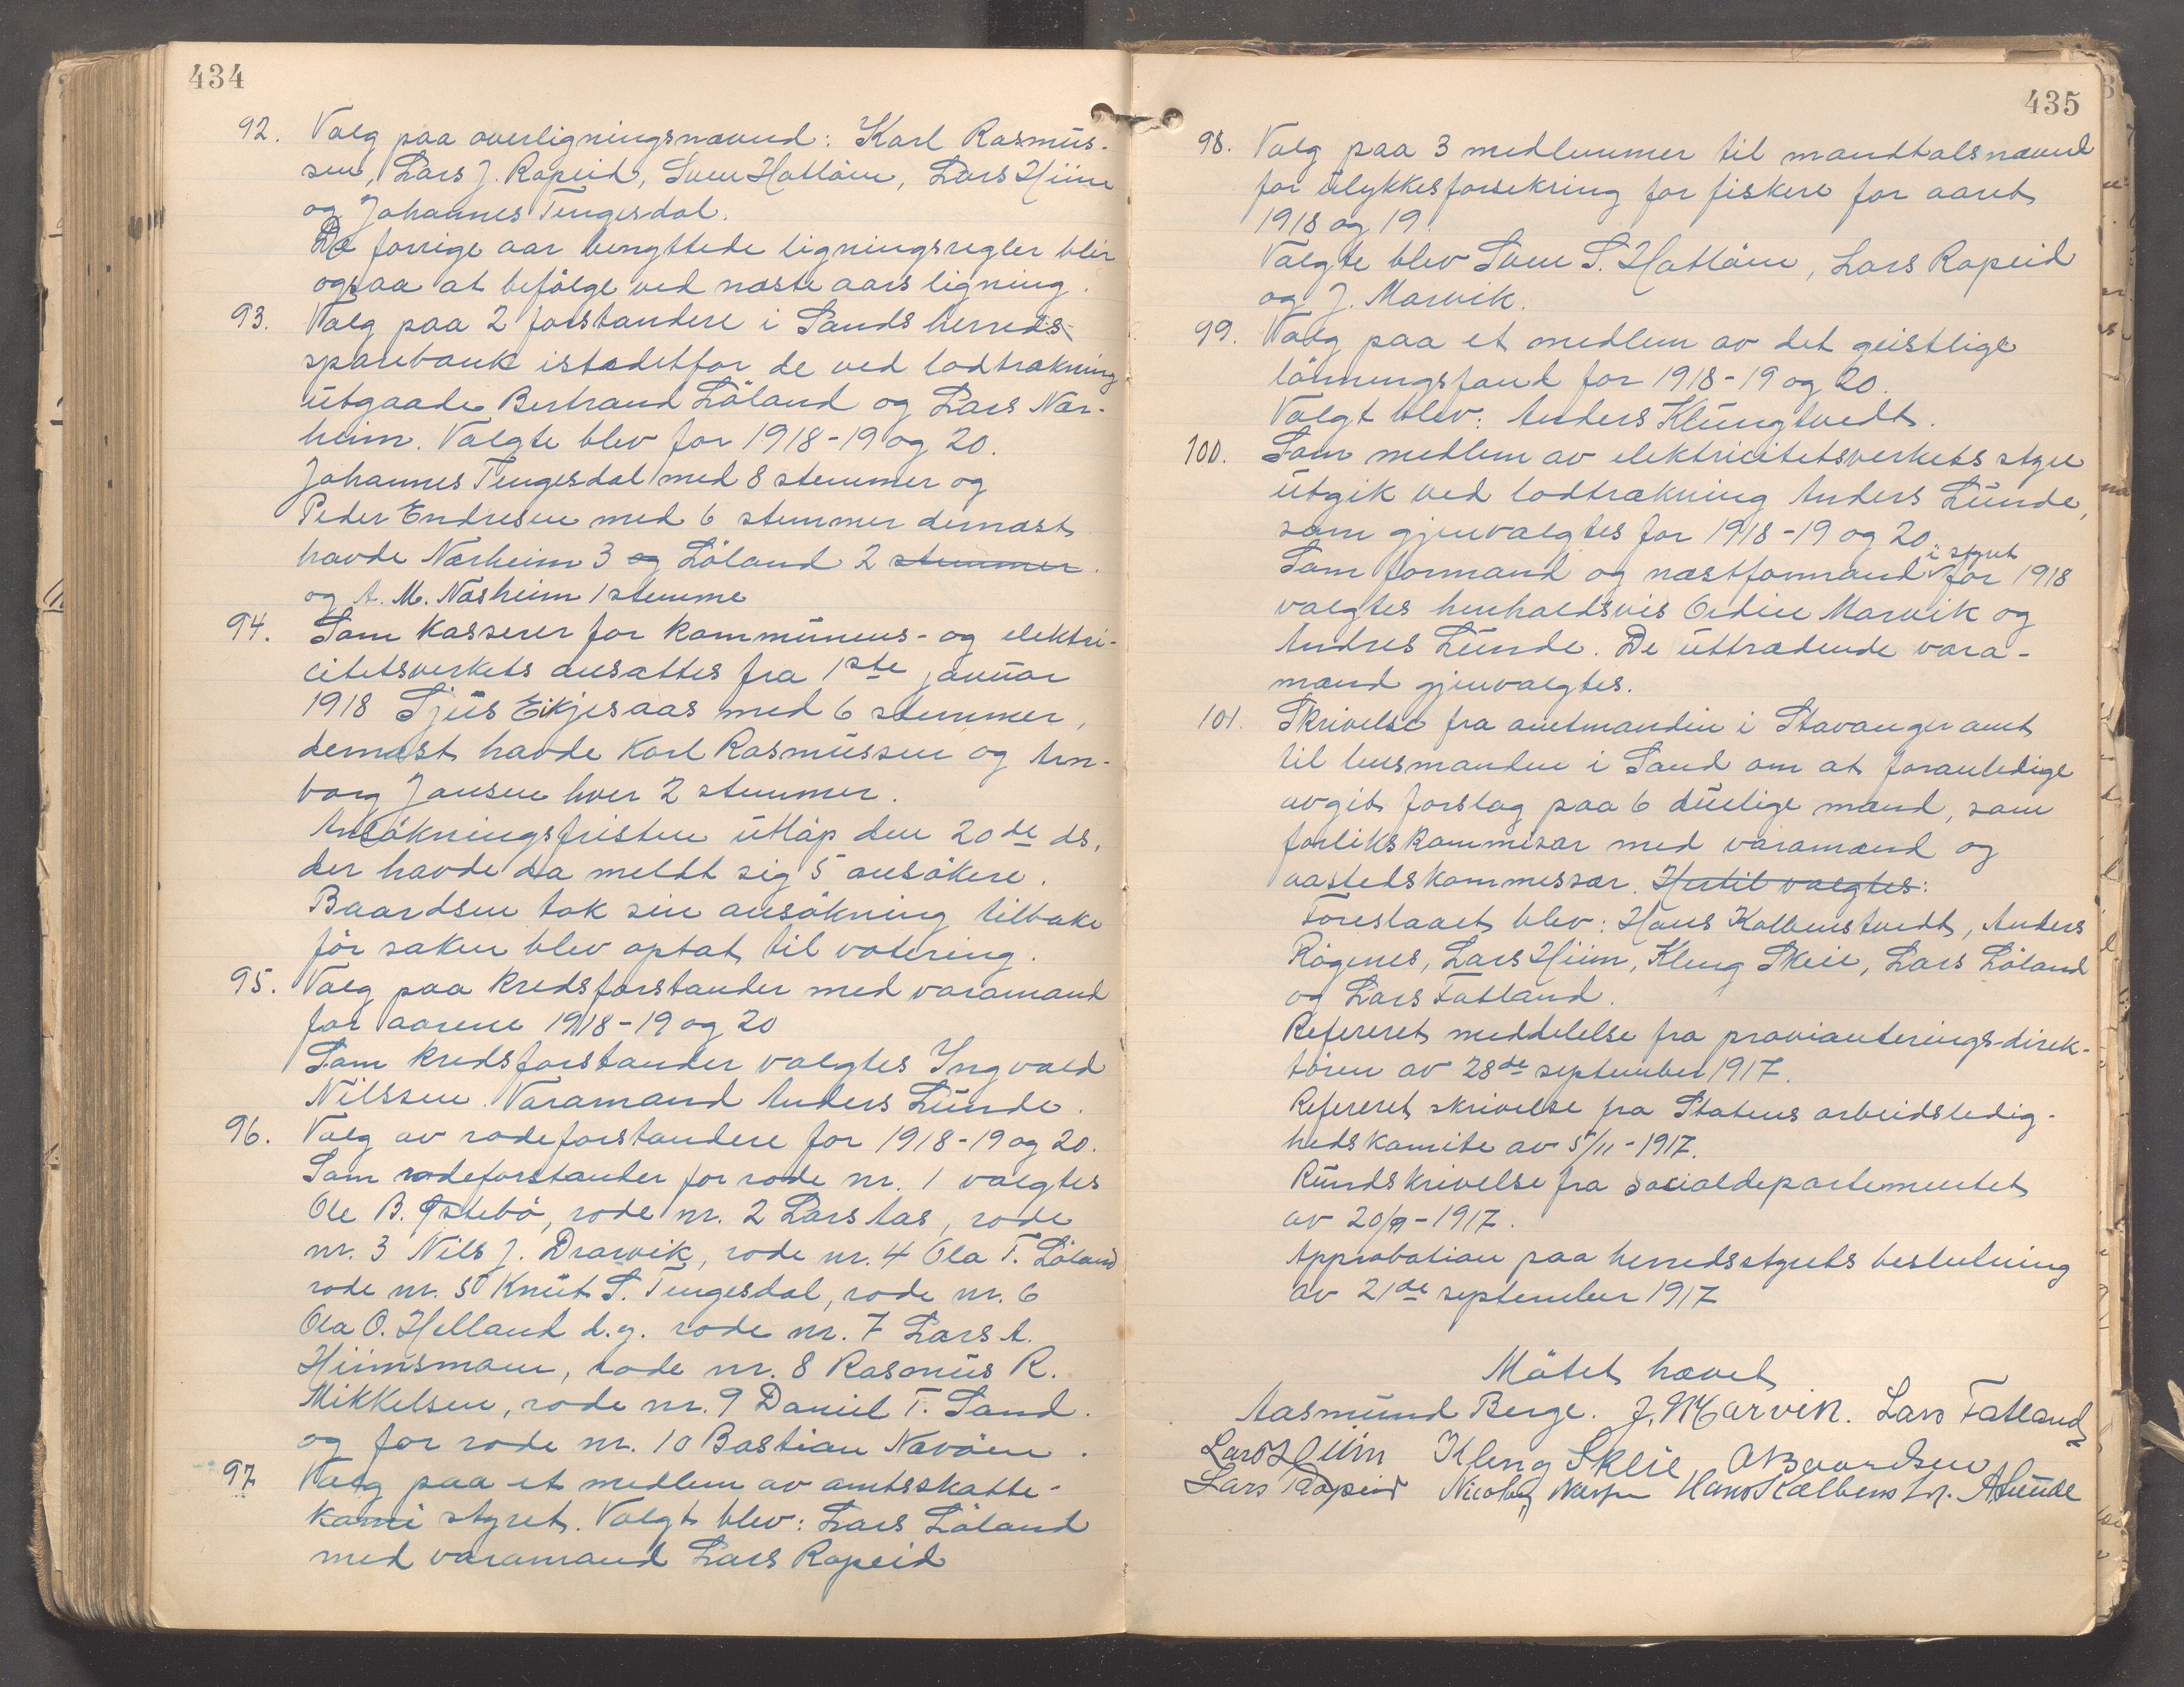 434
92. Valg paa overligningsnævnd: Karl Rasmus-
sen, Lars J. Ropeid, Svein Hatløien, Lars Hiim
og Johannes Tengesdal.
De forrige aar benyttede ligningsregler blir
ogsaa at befølge ved næste aars ligning.
93. Valg paa 2 forstandere i Sands herreds-
sparebank istedetfor de ved lodtrækning
utgaade Bertrand Løland og Lars Nær-
heim. Valgte blev for 1918-19 og 20.
Johannes Tengesdal med 8 stemmer og
Peder Endresen med 6 stemmer dernæst
havde Nærheim 3 og Løland 2 stemmer.
og A. M. Næsheim 1 stemme
94. Som kasserer for kommunens- og elektri-
citetsverkets ansattes fra 1ste januar
1918 Sjus Eikjesaas med 6 stemmer,
dernæst havde Karl Rasmussen og Arn-
borg Jansen hver 2 stemmer.
Ansøkningsfristen utløp den 20de ds,
der havde da meldt sig 5 ansøkere.
Baardsen tok sin ansøkning tilbake
før saken blev optat til votering.
95. Valg paa kredsforstander med varamand
for aarene 1918-19 og 20
Som kredsforstander valgtes Ingvald
Nilssen. Varamand Anders Lunde.
96. Valg av rodeforstandere for 1918-19 og 20.
Som rodeforstander for rode nr. 1 valgtes
Ole B. Østebø, rode nr. 2 Lars Aas, rode
nr. 3 Nils J. Drarvik, rode nr. 4 Ola T. Løland
rode nr. 5 Knut S. Tengesdal, rode nr. 6
Ola O. Helland d.y. rode nr. 7 Lars A.
Hiimsmoen, rode nr. 8 Rasmus R.
Mikkelsen, rode nr. 9 Daniel T. Sand.
og for rode nr. 10 Bastian Navøien.
97 Valg paa et medlem av amtsskatte-
komi styret. Valgt blev: Lars Løland
med varamand Lars Ropeid
435
98. Valg paa 3 medlemmer til mandtalsnævnd
for ulykkesforsekring for fiskere for aaret
1918 og 19.
Valgte blev Svein S. Hatløien, Lars Ropeid
og J. Marvik.
99. Valg paa et medlem av det geistlige
lønningsfond for 1918-19 og 20.
Valgt blev: Anders Klungtvedt.
100. Som medlem av elektricitetsverkets styre
utgik ved lodtrækning Anders Lunde,
som gjenvalgtes for 1918-19 og 20.
Som formand og næstformand i styret for 1918
valgtes henholdsvis Ordin Marvik og
Andres Lunde. De uttrædende vara-
mænd gjenvalgtes.
101. Skrivelse fra amtmanden i Stavanger amt
til lensmanden i Sand om at foranledige
avgit forslag paa 6 duelige mænd, som
forlikskommisær med varamænd og
aastedskommissær. Hertil valgtes:
Foreslaaet blev: Hans Kolbenstvedt, Anders
Røgenes, Lars Hiim, Kleng Skeie, Lars Løland
og Lars Fatland.
Refereret meddelelse fra provianterings-direk-
tøren av 28de september 1917.
Refereret skrivelse fra Statens arbeidsledig-
hedskomite av 5/11-1917.
Rundskrivelse fra socialdepartementet
av 20/9-1917.
Approbation paa herredsstyrets beslutning
av 21de september 1917
Møtet hævet
Aasmund Berge. J. Marvik. Lars Fatland
Lars Hiim Kleng Skeie O Baardsen
Lars Ropeid Nicolay Hans Kolbenstv. A Lunde